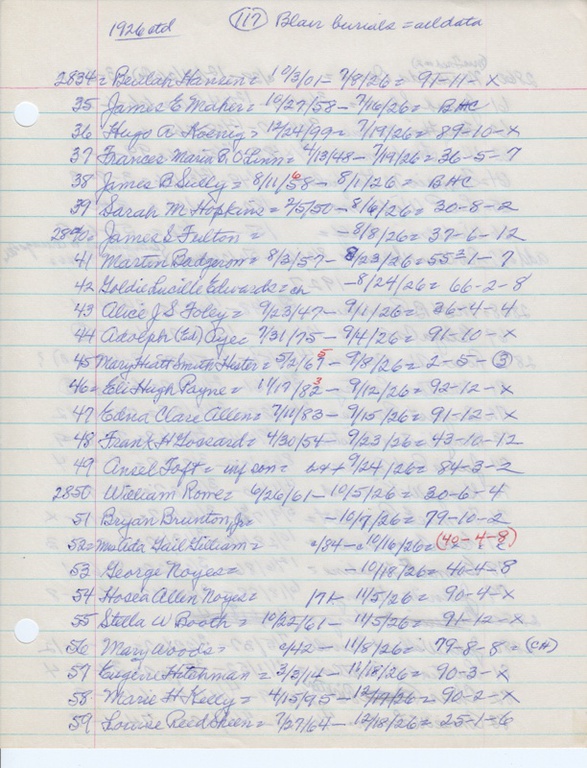 1926 std (117) Blair burials = all data
2834 = Beulah Hansen = 10/3/01 - 7/8/26 = 91-11-x
35 James E Maher = 10/27/58 - 7/16/26 = BHC
36 Hugo A Koenig = 12/24/99 - 7/19/26 = 89-10-x
37 Frances Maria B. O'Linn = 4/13/48 - 7/19/26 = 36-5-7
38 James B Sully = 8/11/58 6 - 8/1/26 = BHC
39 Sarah M Hopkins = 2/5/50 - 8/6/26 = 30-8-2
2840 = James S Fulton = - 8/8/26 = 37-6-12
41 Martin Badgerow = 8/3/57 - 8/23/26 = 55½-1-7
42 Goldie Lucille Edwards = ch - 8/24/26 = 66-2-8
43 Alice J S Foley = 9/23/47 - 9/1/26 = 36-4-4
44 Adolph (Ed) = 7/31/75 - 9/4/26 = 91-10-x
45 Mary Hiatt Smith Hester = 5/2/67 5 - 9/8/26 = 2-5-(3)
46 = Eli Hugh Payne = 11/17/82 3 - 9/12/26 = 92-12-x
47 Edna Clare Allen = 7/11/83 - 9/15/26 = 91-12-x
48 Frank H Gossard = 4/30/54 - 9/23/26 = 43-10-12
49 Ansel Toft = inf son = 9/24/26 = 84-3-2
2850 William Rowe = 6/26/61 - 10/5/26 = 30-6-4
51 Bryan Brunton Jr = - 10/9/26 = 79-10-2
52 = Matilda Gail Gilliam = /84 - 10/16/26 = (40-4-8)
53 George Noyes = - 10/18/26 = 40-4-8
54 Hosea Allen Noyes = /71 - 11/5/26 = 90-4-x
55 Stella W Booth = 10/22/61 - 11/5/26 = 91-12-x
56 Mary Woods = /42 - 11/8/26 = 79-8-8 = (CH)
57 Eugene Hitchman = 3/3/14 - 11/18/26 = 90-3-x
58 Marie H Kelly = 4/15/95 - 12/17/26 = 90-2-x
59 Louise Reed Skeen = 7/27/64 - 12/18/26 = 25-1-6